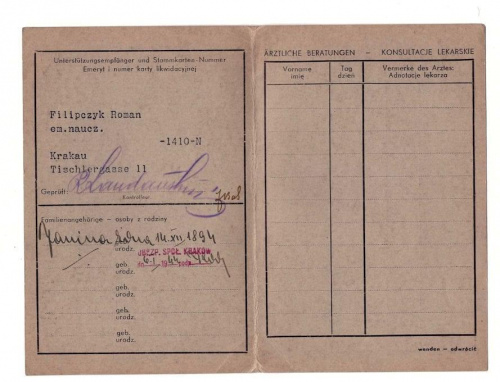 Unterstützungsempfänger und Stammkarten-Nummer
Emeryt i numer karty likwidacyjnej
Filipczyk Roman
em.naucz.
-1410-N
Krakau
Tischlergasse 11
Geprüft:
Kontrolleur
Familienangehörige – osoby z rodziny
Janina żona 14.XII.1894
urodz.
UBEZP. SPOŁ. KRAKÓW
geb.
urodz.
geb.
urodz.
geb.
urodz.
geb.
urodz.
ÄRZTLICHE BERATUNGEN – KONSULTACJE LEKARSKIE
Vorname
imię
Tag
dzień
Vermerke des Arztes:
Adnotacje lekarza
wenden – odwrócić